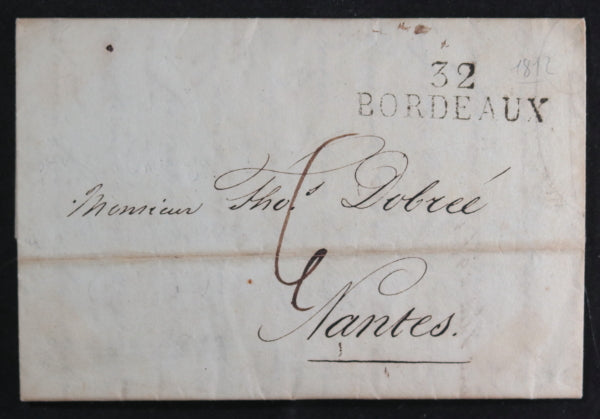 32
BORDEAUX
1812
Monsieur Tho.s Dobreé
Nantes.